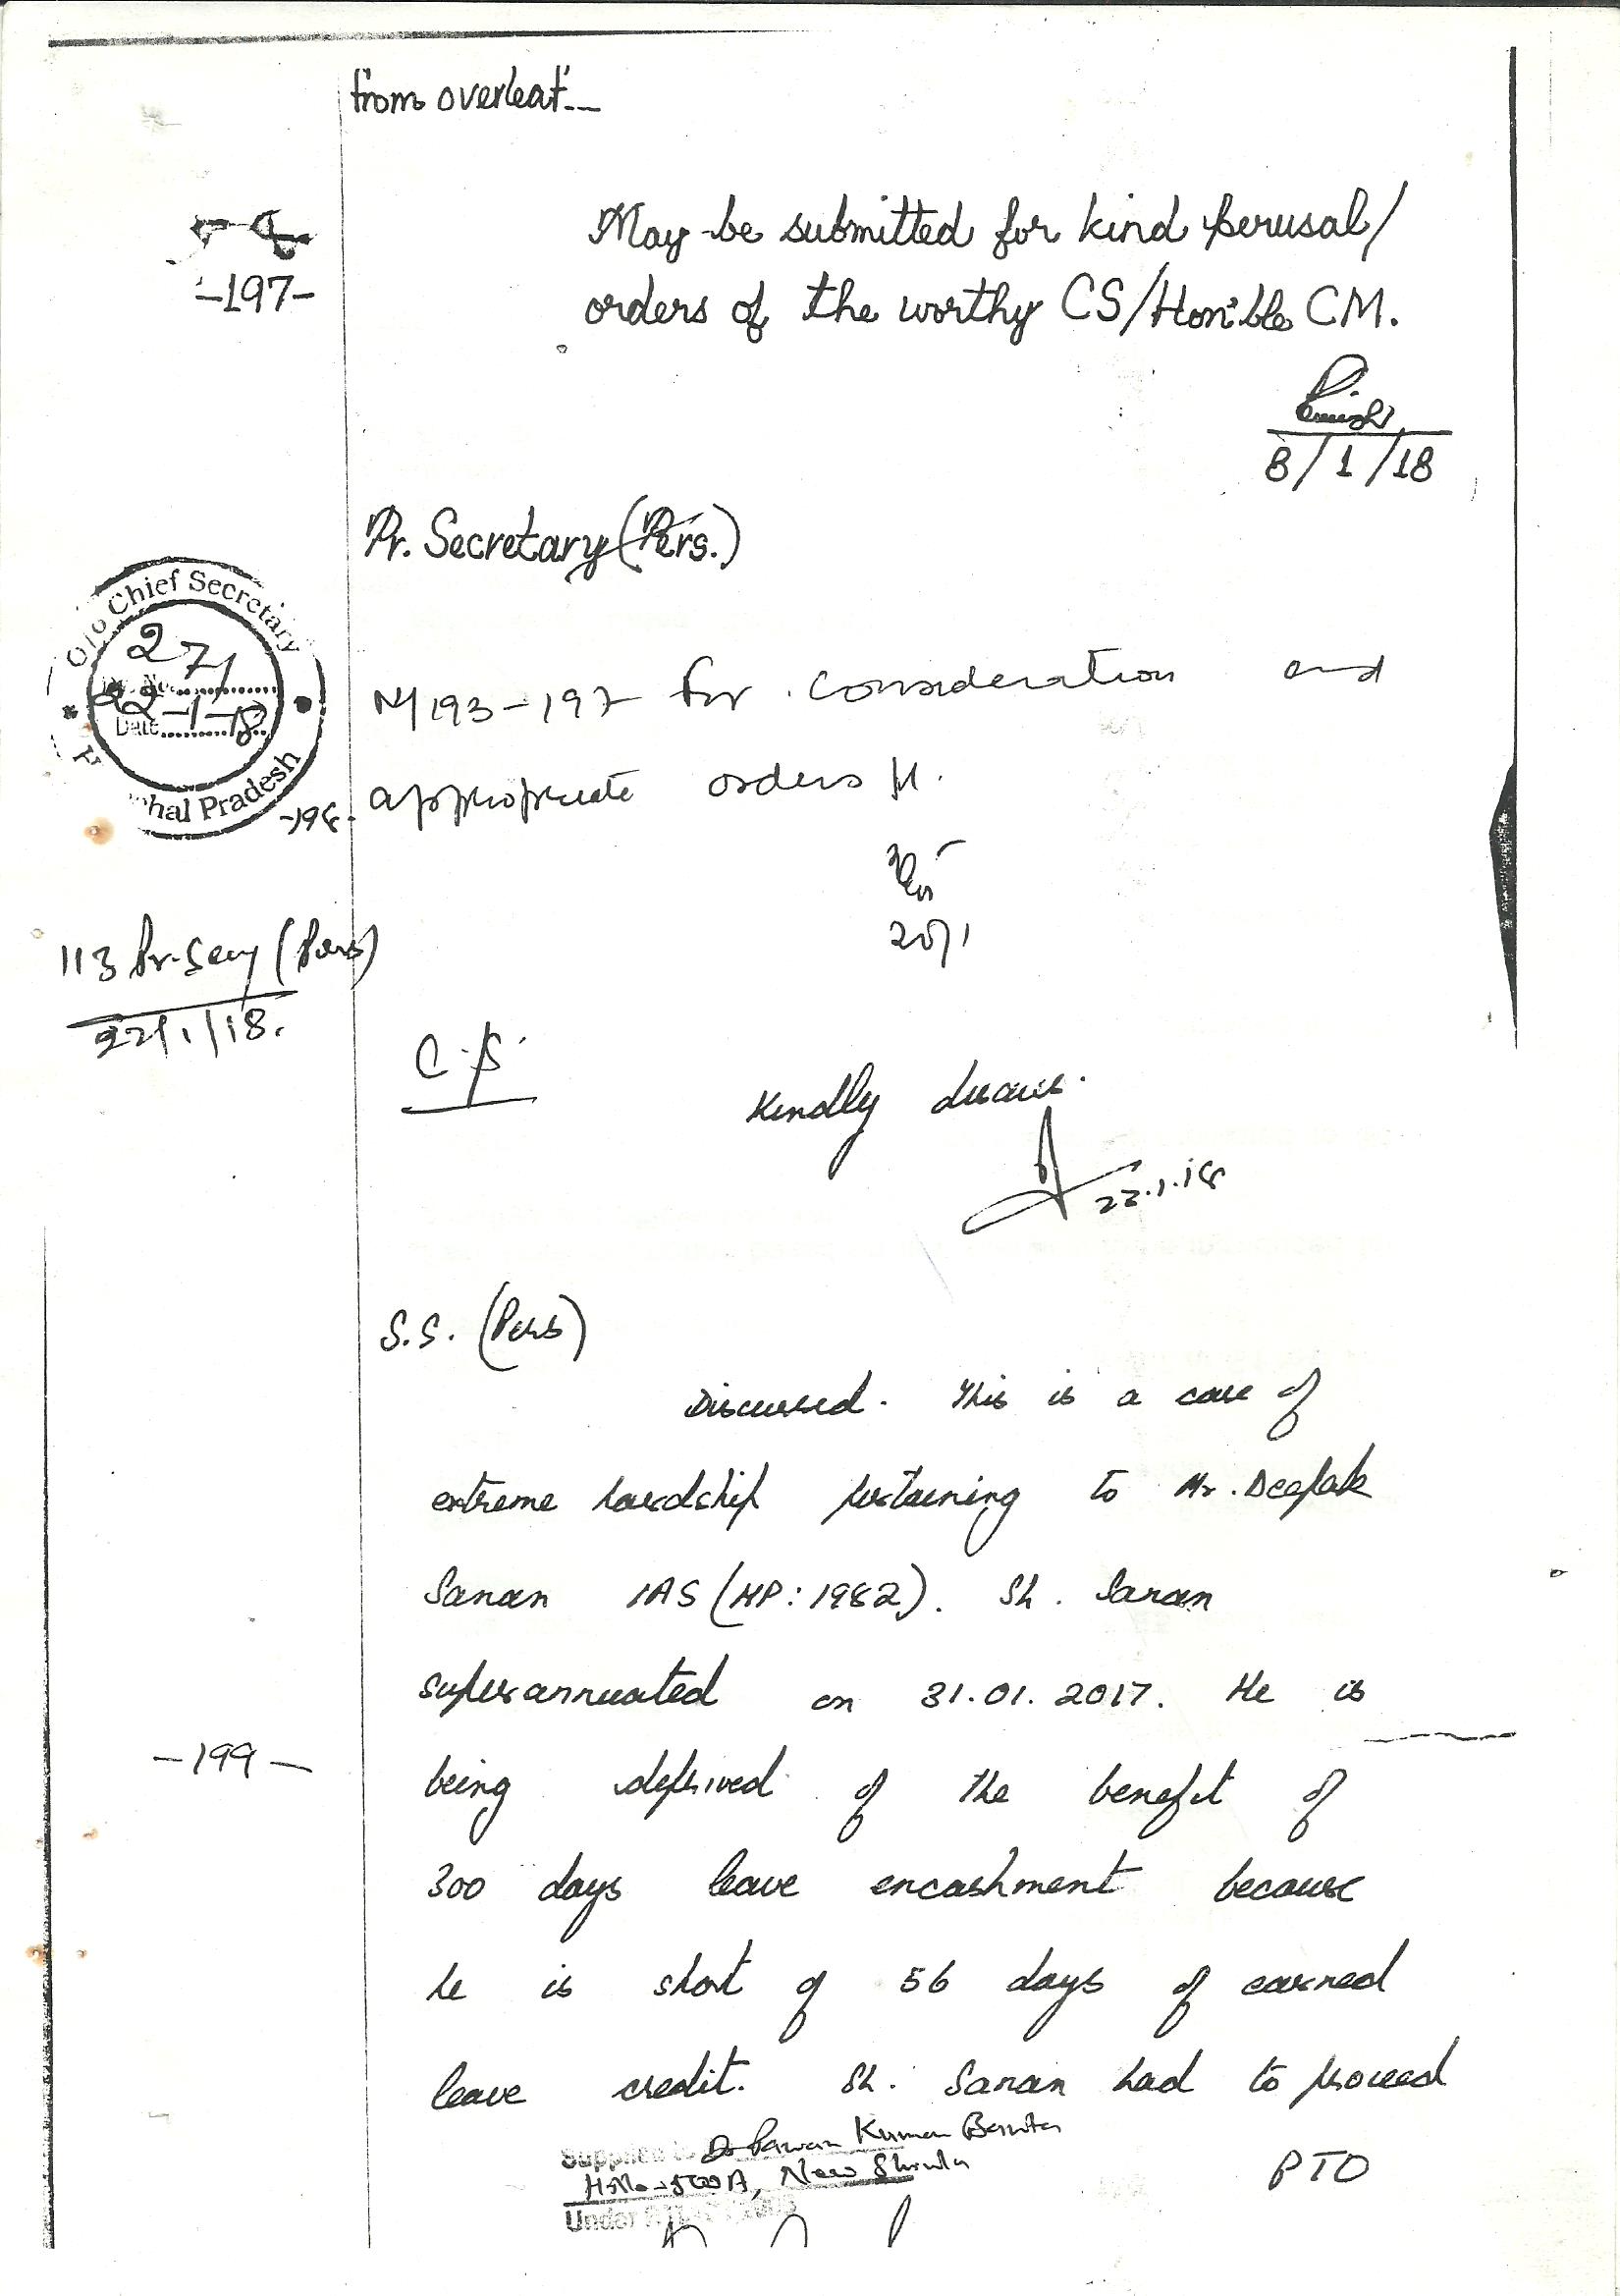 from overleaf --
May be submitted for kind perusal/
-197-
orders of the worthy CS/Hon'ble CM.
8/1/18
Pr. Secretary (Pers.)
O/o Chief Secretary
271
22-1-18
Date
hal Pradesh
N/193-197 for consideration and
-198-
appropriate orders pl.
20/1
113 Pr. Secy (Pers)
22/1/18.
C.S.
Kindly discuss.
22.1.18
S.S. (Pers)
Discussed. This is a case of
extreme hardship pertaining to Mr. Deepak
Sanan IAS (HP: 1982). Sh. Sanan
superannuated on 31.01.2017. He is
-199-
being deprived of the benefit of
300 days leave encashment because
he is short of 56 days of earned
leave credit. Sh. Sanan had to proceed
Supplied to Dr Pawan Kumar Banta
PTO
H.No-500A, New Shimla
Under